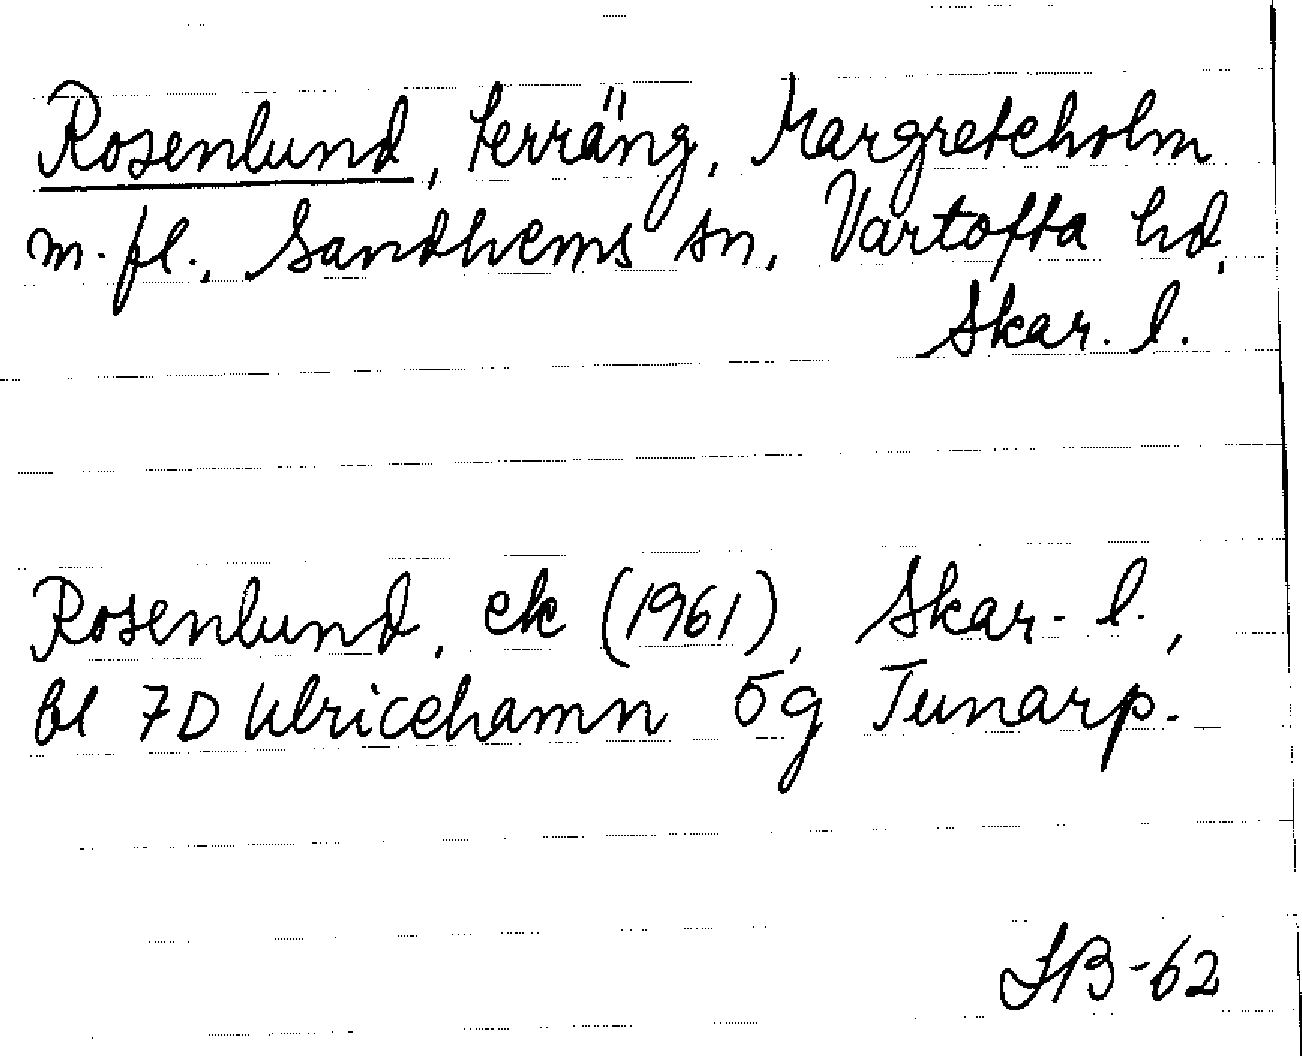 Rosenlund, terräng, Margreteholm
m. fl., Sandhems sn, Vartofta hd,
Skar. l.
Rosenlund, ek (1961), Skar. l.,
bl 7D Ulricehamn 5g Tunarp.
SB-62